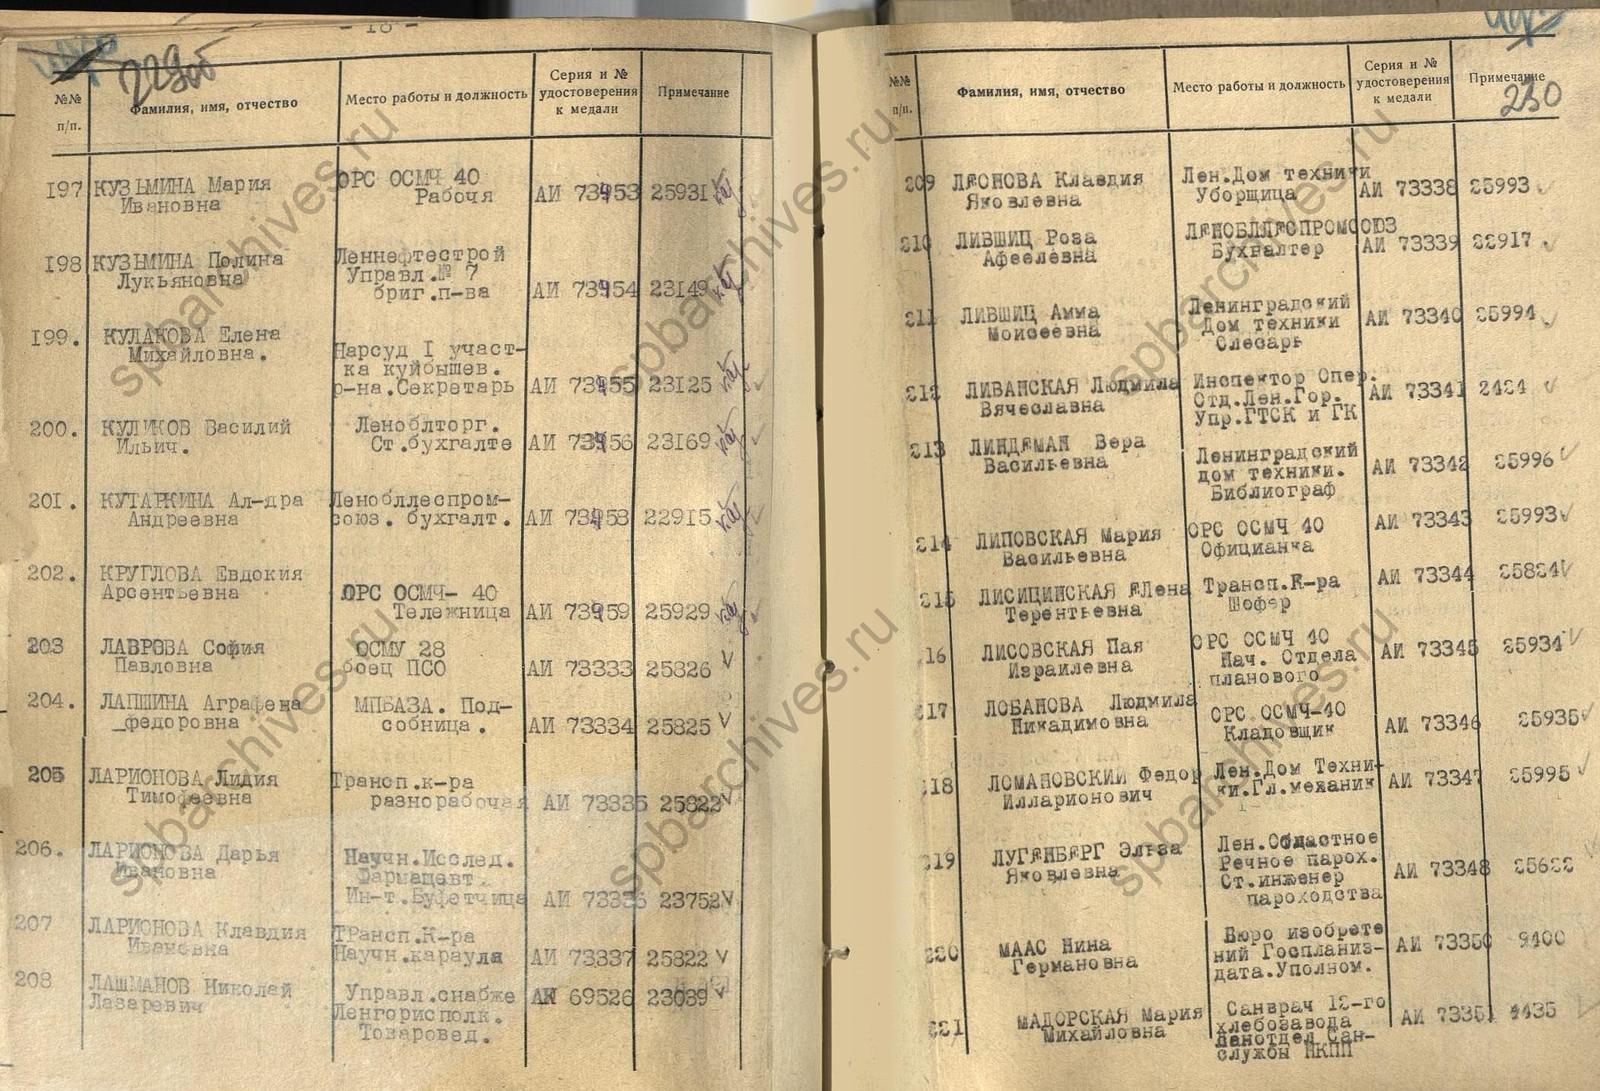 - 18 -
229об
№№ п/п.
Фамилия, имя, отчество
Место работы и должность
Серия и № удостоверения к медали
Примечание
197 КУЗЬМИНА Мария ОРС ОСМЧ 40
Ивановна Рабочя АИ 73953 25931
198 КУЗЬМИНА Полина Леннефтестрой
Лукьяновна Управл.№ 7
бриг.п-ва АИ 73954 23149
199. КУЛАКОВА Елена
Михайловна. Нарсуд I участ-
ка куйбышев.
р-на.Секретарь АИ 73955 23125
200. КУЛИКОВ Василий Леноблторг.
Ильич. Ст.бухгалте АИ 73956 23169
201. КУТАРКИНА Ал-дра Ленобллеспром-
Андреевна союз. бухгалт. АИ 73958 22915
202. КРУГЛОВА Евдокия
Арсентьевна ОРС ОСМЧ- 40
Тележница АИ 73959 25929
203 ЛАВРОВА София ОСМУ 28
Павловна боец ПСО АИ 73333 25826
204. ЛАПШИНА Аграфена МПБАЗА. Под-
федоровна собница. АИ 73334 25825
205 ЛАРИОНОВА Лидия Трансп.к-ра
Тимофеевна разнорабочая АИ 73335 25822
206. ЛАРИОНОВА Дарья Научн.Исслед.
Ивановна Фармацевт.
Ин-т.Буфетчица АИ 73336 23752
207 ЛАРИОНОВА Клавдия Трансп.К-ра
Ивановна Научн.караула АИ 73337 25822
208 ЛАШМАНОВ Николай Управл.снабже АК 69526 23089
Лазаревич Ленгорисполк.
Товаровед.
230
№№ п/п.
Фамилия, имя, отчество
Место работы и должность
Серия и № удостоверения к медали
Примечание
209 ЛЕОНОВА Клавдия Лен.Дом техники
Яковлевна Уборщица АИ 73338 25993
210 ЛИВШИЦ Роза ЛЕНОБЛЛЕСПРОМСОЮЗ
Афеелевна Бухвалтер АИ 73339 22917
211 ЛИВШИЦ Амма Ленинградский
Моисеевна Дом техники
Слесарь АИ 73340 25994
212 ЛИВАНСКАЯ Людмила Инспектор Опер.
Вячеславна Отд.Лен.Гор.
Упр.ГТСК и ГК АИ 73341 2424
213 ЛИНДЕМАН Вера Ленинградский
Васильевна дом техники.
Библиограф АИ 73342 25996
214 ЛИПОВСКАЯ Мария ОРС ОСМЧ 40
Васильевна Официанка АИ 73343 25993
215 ЛИСИЦИНСКАЯ Елена Трансп.К-ра
Терентьевна Шофер АИ 73344 25824
216 ЛИСОВСКАЯ Пая ОРС ОСМЧ 40
Израилевна Нач. Отдела
планового АИ 73345 25934
217 ЛОБАНОВА Людмила ОРС ОСМЧ-40
Никадимовна Кладовщик АИ 73346 25935
218 ЛОМАНОВСКИЙ Федор Лен.Дом Техни-
Илларионович ки.Гл.механик АИ 73347 25995
219 ЛУГЕНБЕРГ Эльза Лен.Областное
Яковлевна Речное парох.
Ст.инженер
пароходства АИ 73348 25622
220 МААС Нина Бюро изобрете
Германовна ний Госпланиз-
дата.Уполном. АИ 73350 9400
221 МАДОРСКАЯ Мария Санврач 12-го
Михайловна хлебозавода
Ленотдел Сан-
службы НКПП АИ 73351 4435
spbarchives.ru
spbarchives.ru
spbarchives.ru
spbarchives.ru
spbarchives.ru
spbarchives.ru